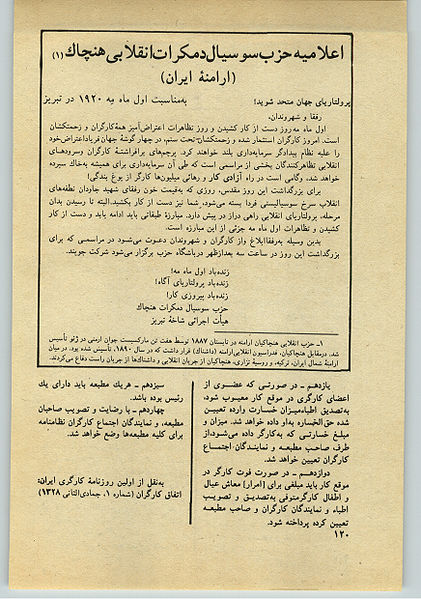 اعلامیه حزب سوسیال دمکرات انقلابی هنچاک (۱)
(ارامنهٔ ایران)
پرولتاریای جهان متحد شوید! به‌مناسبت اول ماه مه ۱۹۲۰ در تبریز
رفقا و شهروندان،
اول ماه مه‌روز دست از کار کشیدن و روز تظاهرات اعتراض‌آمیز همهٔ‌کارگران و زحمتکشان
است. امروز کارگران استثمار شده و زحمتکشان‌تحت ستم، در چهار گوشهٔ جهان فریاداعتراض‌خود
را علیه نظام بیدادگر سرمایه‌داری بلند خواهند کرد. پرچم‌های برافراشتهٔ کارگران وسرودهای
انقلابی تظاهرکنندگان بخشی از مراسمی است که طی آن سرمایه‌داری برای همیشه به‌خاک سپرده
خواهد شد، وگامی است در راه آزادی کار و رهائی میلیون‌ها کارگر از یوغ بندگی!
برای بزرگداشت این روز مقدس، روزی که به‌قیمت خون رفقای شهید جاردان نطفه‌های
انقلاب سرخ سوسیالیستی فردا بسته می‌شود، شما نیز دست از کار بکشید.البته تا رسیدن بدان
مرحله، پرولتاریای انقلابی راهی دراز در پیش دارد. مبارزهٔ طبقاتی باید ادامه یابد و دست از کار
کشیدن و تظاهرات اول ماه مه جزئی از این مبارزه است.
بدین وسیله به‌رفقاابلاغ واز کارگران و شهروندان دعوت می‌شود در مراسمی که برای
بزرگداشت این روز در ساعت سه بعدازظهر درباشگاه حزب برگزار می‌شود شرکت جویند.
زنده‌باد اول ماه مه!
زنده‌باد پرولتاریای آگاه!
زنده‌باد پیروزی کار!
حزب سوسیال دمکرات هنچاک
هیأت اجرائی شاخهٔ تبریز
۱– حزب انقلابی هنچاکیان ارامنه در تابستان ۱۸۸۷ توسط هفت تن مارکسیست جوان ارمنی در ژنو تأسیس
شد. درمقابل هنچاکیان، فدراسیون انقلابی‌ارامنه (داشناک) قرار داشت که در سال ۱۸۹۰، تأسیس شده بود. در میان
ارامنهٔ شمال ایران، ترکیه، و روسیهٔ تزاری، هنچاکیان از جریان انقلابی و داشناک‌ها از جریان راست دفاع می‌کردند.
یازدهم – در صورتی که عضوی از
اعضای کارگری در موقع کار معیوب شود،
به‌تصدیق اطباءمیزان خسارت وارده تعیین
شده حق‌الخساره به‌او داده خواهد شد. میزان و
مبلغ خسارتی که به‌کارگر داده می‌شود،از
طرف صاحب مطبعه و نمایندگان اجتماع
کارگران تعیین خواهد شد.
دوازدهم – در صورت فوت کارگر در
موقع کار باید مبلغی برای [امرار] معاش عیال
و اطفال کارگرمتوفی به‌تصدیق و تصویب
اطباء و نمایندگان کارگران و صاحب مطبعه
تعیین کرده پرداخته شود.
سیزدهم – هریک مطبعه باید دارای یک
رئیس بوده باشد.
چهاردهم – با رضایت و تصویب صاحبان
مطبعه، و نمایندگان اجتماع کارگران نظامنامه
برای کلیه مطبعه‌ها وضع خواهد شد.
به‌نقل از اولین روزنامهٔ کارگری ایران:
اتفاق کارگران (شماره ۱، جمادی‌الثانی ۱۳۲۸)
۱۲۰